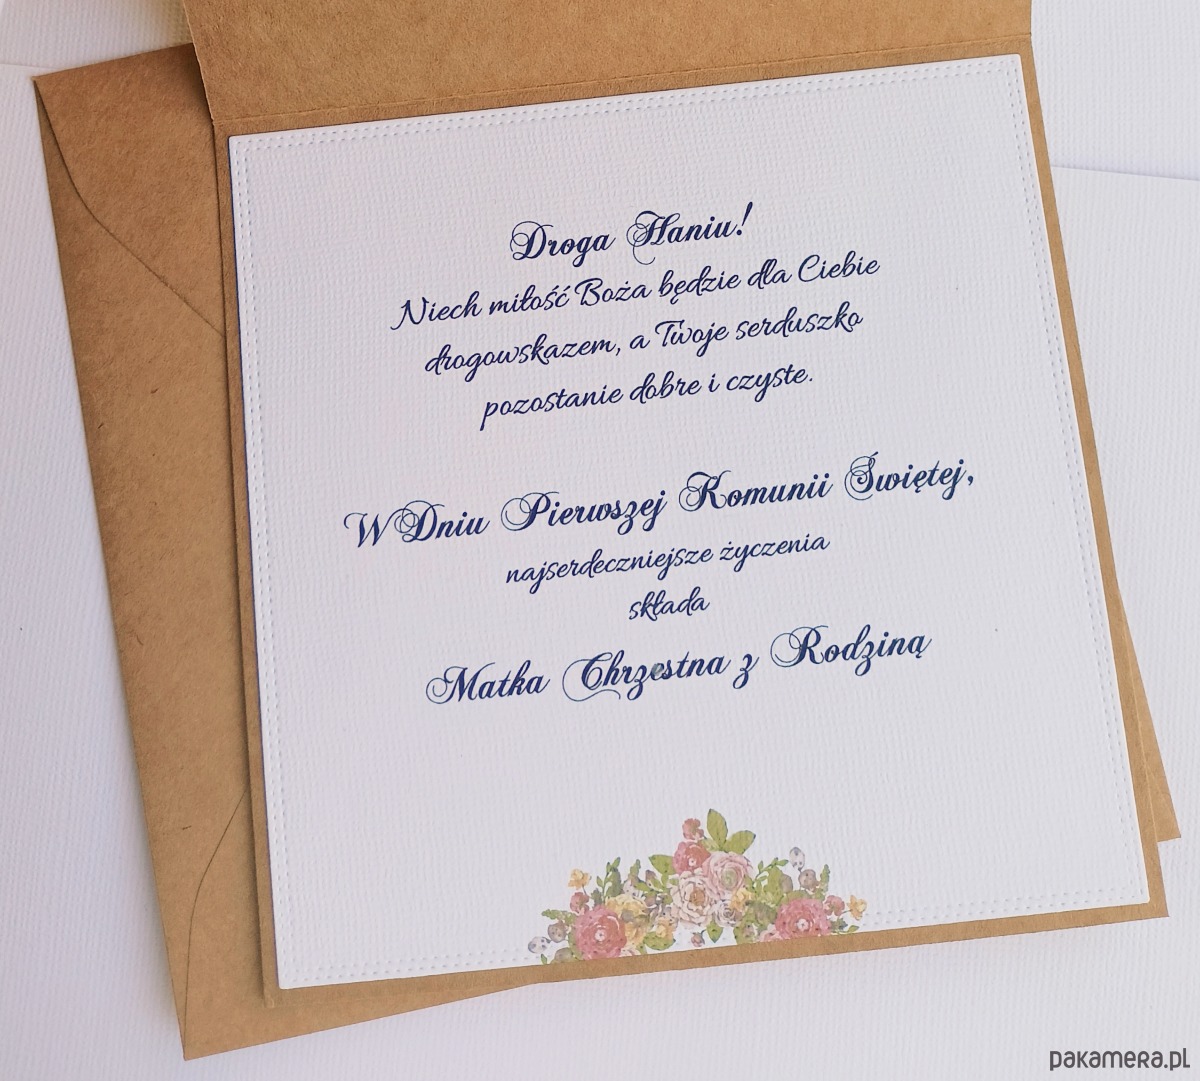 Droga Haniu!
Niech miłość Boża będzie dla Ciebie
drogowskazem, a Twoje serduszko
pozostanie dobre i czyste.
W Dniu Pierwszej Komunii Świętej,
najserdeczniejsze życzenia
składa
Matka Chrzestna z Rodziną
pakamera.pl